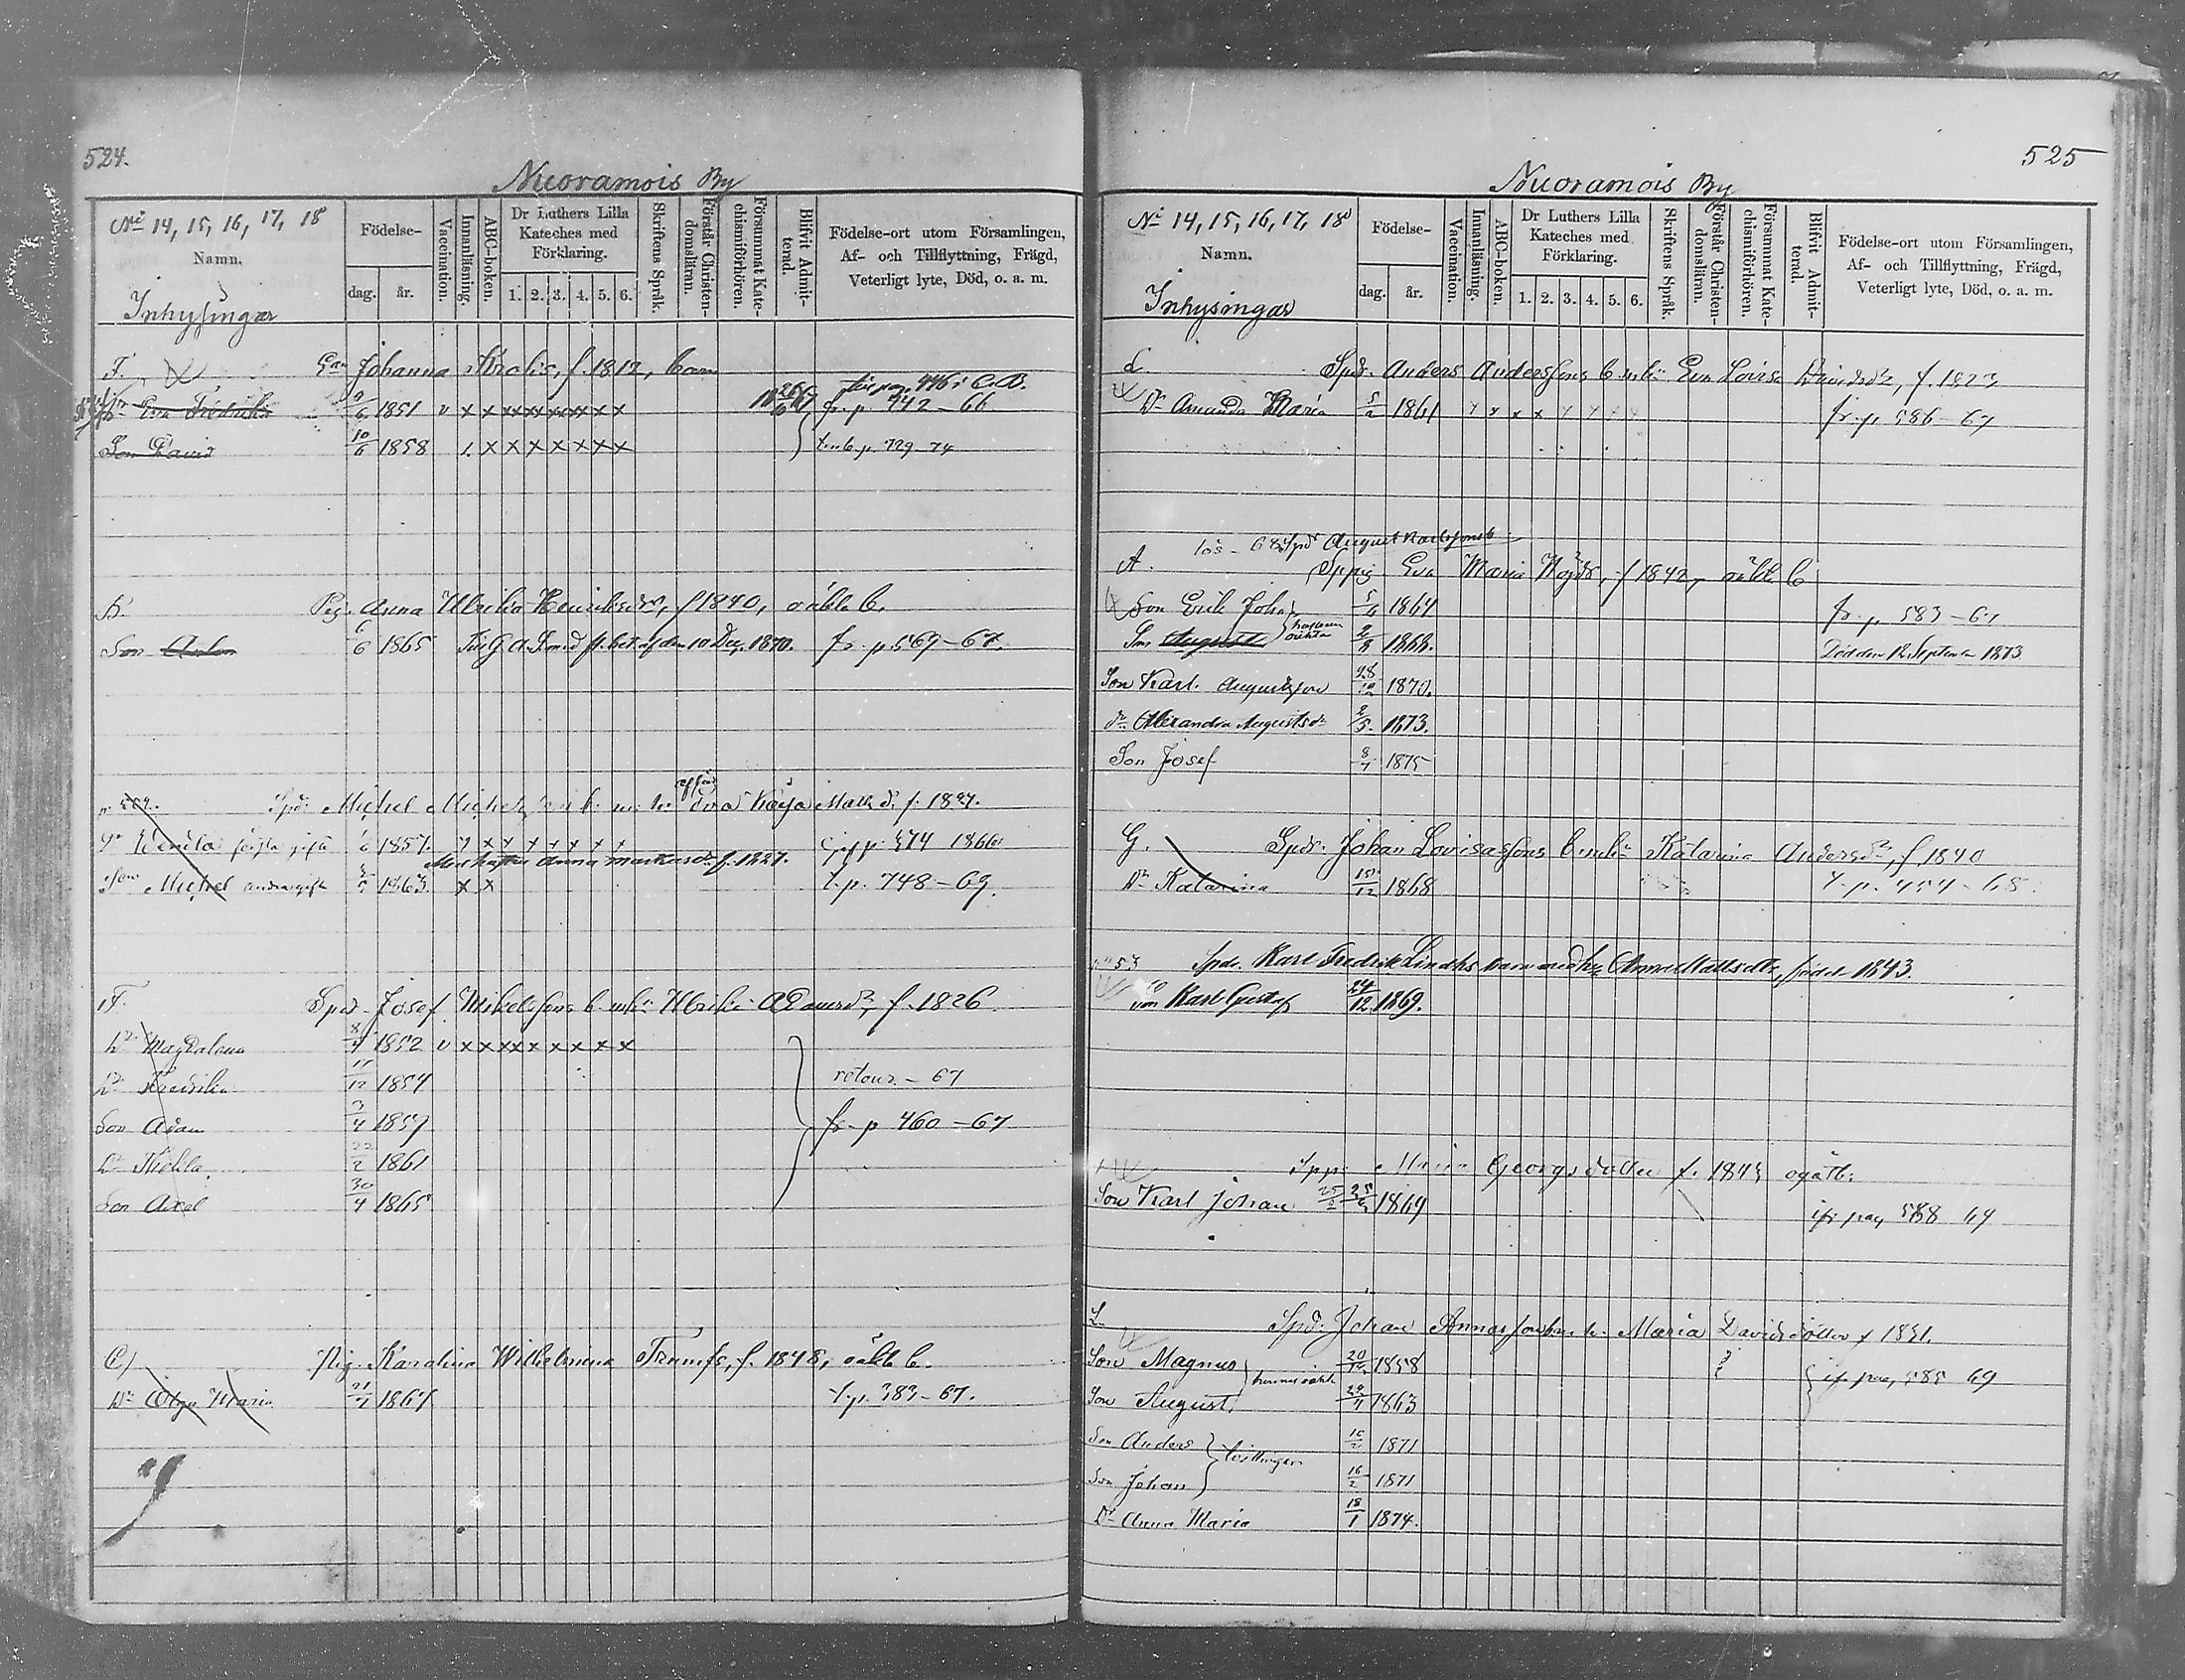 524.
Nuoramois By
No 14, 15, 16, 17, 18
Namn.
Inhysingar
Födelse-
dag. år.
Vaccination.
Innanläsning.
ABC-boken.
Dr Luthers Lilla Kateches med Förklaring.
1. 2. 3. 4. 5. 6.
Skriftens Språk.
Förstår Christendomsläran.
Försummat Katechismiförhören.
Blifvit Admitterad.
Födelse-ort utom Församlingen,
Af- och Tillflyttning, Frägd,
Veterligt lyte, Död, o. a. m.
F. Johanna f. 1812, barn
Eva Fredrika 9/6 1851 v x x x x x x x x x fr. p. 942-66
Son David 10/6 1858 x x x x x x x p. 729-74
B. Pig. Anna Ulrika Henriksdr, f 1840, oäkta b.
Son Anton 6/6 1865 10 Dec. 1870. fr. p. 569-67.
Spd. Michel Michels b. m. h. Kaija Matts d. f. 1827.
Dr Wendla första gifte 1857. x x x x x x 474 1866
Med hustru Anna Markusdr f. 1827.
Son Michel andra gifte 1863 x x t. p. 748-69.
F. Spd. Josef Mikelssons b. mhu Ulrika Adamsdr, f. 1826
Dr Magdalena 8/4 1852 v x x x x x x x x
Dr Fredrika 1854 retour - 67
Son Adam 3/4 1859 fr. p 460-67
Dr 22/2 1861
Son Axel 30/4 1865
C) Pig. Karolina Wilhelmina f. 1848, oäkta b.
Dr Olga Maria 21/7 1867 t. p. 383-67.
525
Nuoramois By
No 14, 15, 16, 17, 18
Namn.
Inhysingar
Födelse-
dag. år.
Vaccination.
Innanläsning.
ABC-boken.
Dr Luthers Lilla Kateches med Förklaring.
1. 2. 3. 4. 5. 6.
Skriftens Språk.
Förstår Christendomsläran.
Försummat Katechismiförhören.
Blifvit Admitterad.
Födelse-ort utom Församlingen,
Af- och Tillflyttning, Frägd,
Veterligt lyte, Död, o. a. m.
Spd. Anders Anderssons b mhu Eva Lovisa Davidsdr, f. 1823
Dr Amanda Maria 1861 fr. p. 586-67
Spd August Karlssons b
A. Eva Maria f 1842, oäkta b
Son Erik Johan 1864 fr. p. 583-67
Son August 2/8 1868. Död den 12 September 1873
Son Karl Augustsson 28/12 1870.
dr Alexandra Augustsdr 2/5 1873.
Son Josef 8/7 1875
G. Spd. Johan Lovisassons b mhu Katarina Andersdr, f 1840
Dr Katarina 1868 t. p. 454-68
Spd. Karl Fredrik Lindhs barn med hu Anna Mattsdtr, född 1843.
Son Karl Gustaf 24/12 1869.
Maria Georgsdotter f. 1843 ogift b.
Son Karl Johan 1869 ifr pag 588 69
L. Spd. Johan Annassons b m h. Maria Davidsdotter f 1831.
Son Magnus 20/12 1858 ifr pag 585 69
Son August 1863
Son Anders } tvillingar 16/2 1871
Son Johan 16/2 1871
Dr Anna Maria 18/1 1874.